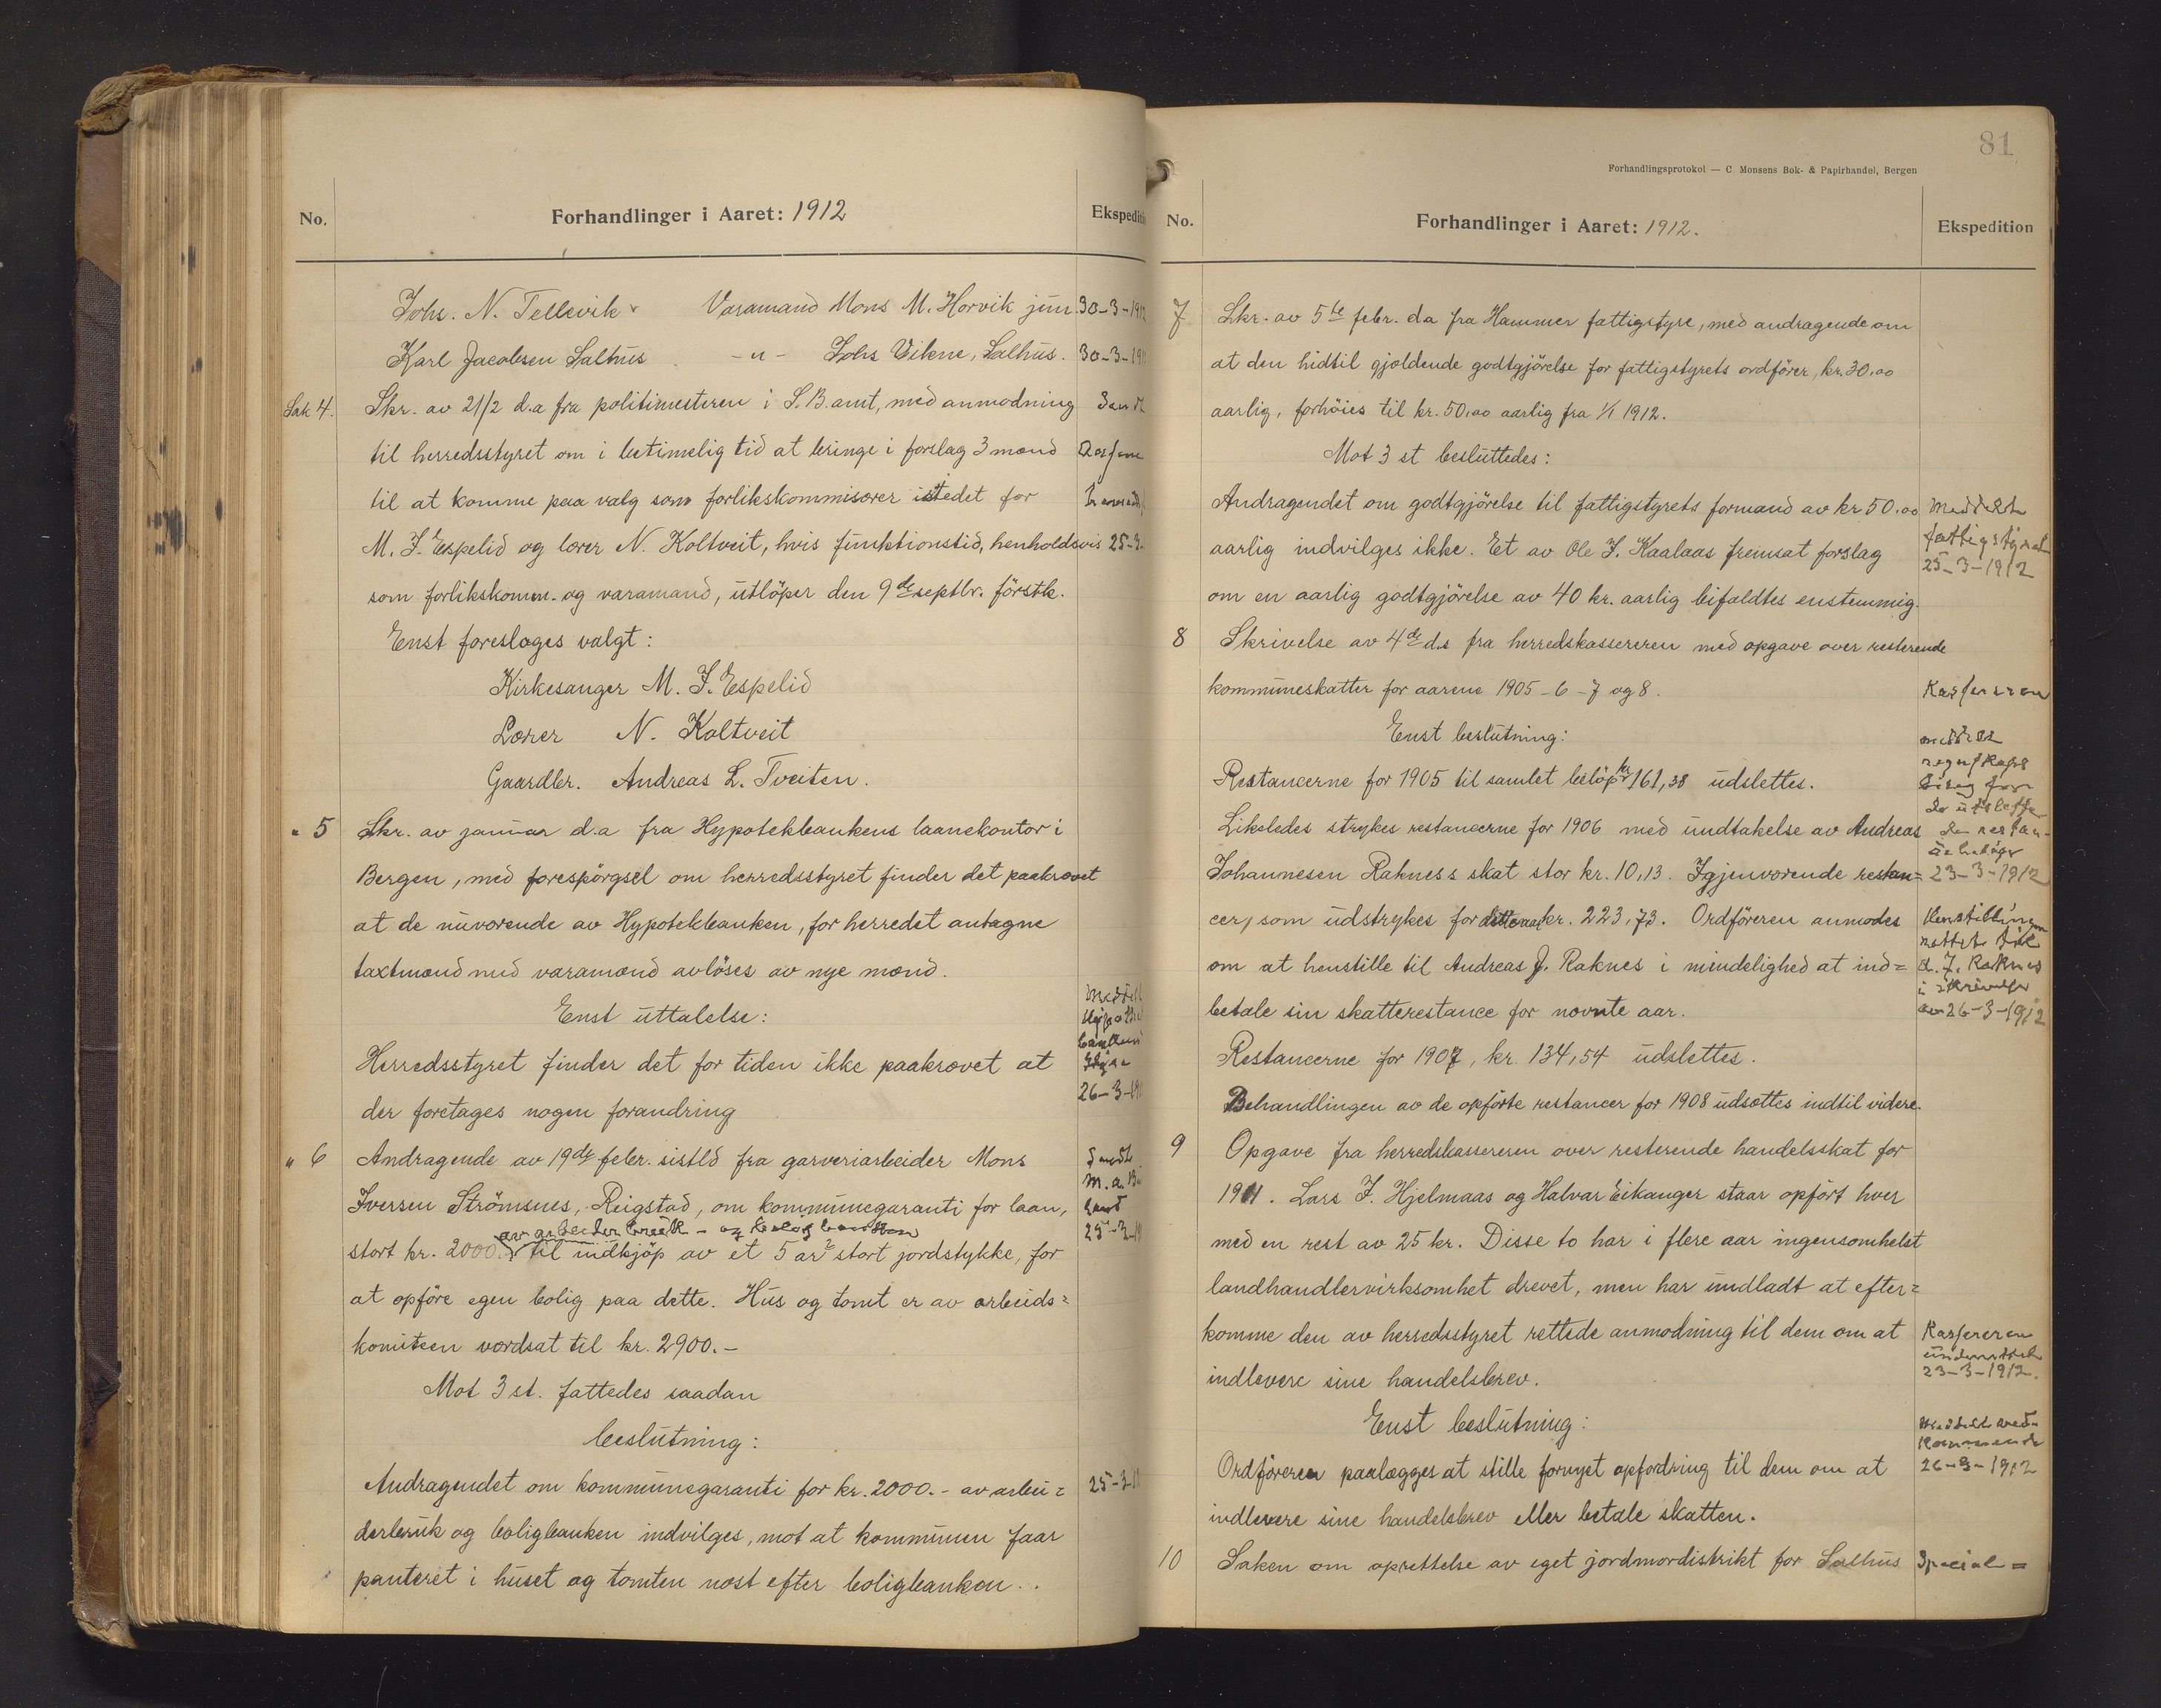 No.
Forhandlinger i Aaret: 1912
Ekspediti
Johs. N. Tellevik Varamand Mons M. Horvik jun. 30-3-1912
Karl Jacobsen Salhus -"- Johs Vikne, Salhus. 30-3-191
Sak 4. Skr. av 21/2 d.a fra politimesteren i S.B. amt, med anmodning
til herredsstyret om i betimelig tid at bringe i forslag 3 mænd
til at komme paa valg som forlikskommisærer istedet for
M. J. Espelid og lærer N. Koltveit, hvis funktionstid, henholdsvis 25-3-
som forlikskomm. og varamand, utlöper den 9de septbr. förstk.
Enst foreslages valgt:
Kirkesanger M. J. Espelid
Lærer N. Koltveit
Gaardbr. Andreas L. Tveiten.
" 5 Skr. av januar d.a fra Hypotekbankens laanekontor i
Bergen, med forespörgsel om herredsstyret finder det paakrævet
at de nuværende av Hypotekbanken, for herredet antagne
taxtmænd med varamænd avlöses av nye mænd.
Enst uttalelse:
Herredsstyret finder det for tiden ikke paakrævet at
der foretages nogen forandring
26-3-191
" 6 Andragende av 19de febr. sistld fra garveriarbeider Mons
Iversen Strömsnes, Reigstad, om kommunegaranti for laan,
av arbeiderbruk- og boligbanken
stort kr. 2000.- til indkjöp av et 5 ar² stort jordstykke, for
25-3-19
at opföre egen bolig paa dette. Hus og tomt er av arbeids=
komiteen værdsat til kr. 2900.-
Mot 3 st. fattedes saadan
beslutning:
Andragendet om kommunegaranti for kr. 2000.- av arbei= 25-3-1
derbruk og boligbanken indvilges, mot at kommunen faar
panteret i huset og tomten næst efter boligbanken.
81
Forhandlingsprotokol — C. Monsens Bok- & Papirhandel, Bergen
No.
Forhandlinger i Aaret: 1912.
Ekspedition
7 Skr. av 5te febr. da fra Hammer fattigstyre, med andragende om
at den hidtil gjældende godtgjörelse for fattigstyrets ordförer, kr. 30.00
aarlig, forhöies til kr. 50.00 aarlig fra 1/1 1912.
Mot 3 st besluttedes:
Andragendet om godtgjörelse til fattigstyrets formand av kr 50.00
aarlig indvilges ikke. Et av Ole J. Kaalaas fremsat forslag
om en aarlig godtgjörelse av 40 kr. aarlig bifaldtes enstemmig.
Meddelt
fattigstyret
25-3-1912
8 Skrivelse av 4de ds fra herredskassereren med opgave over resterende
kommuneskatter for aarene 1905-6-7 og 8.
Enst beslutning:
Restancerne for 1905 til samlet belöp kr 161,38 udslettes.
Likeledes strykes restancerne for 1906 med undtakelse av Andreas
Johannesen Rakness skat stor kr. 10,13. Igjenværende restan=
cer, som udstrykes for dette aar kr. 223,73. Ordföreren anmodes
om at henstille til Andreas J. Raknes i mindelighed at ind=
betale sin skatterestance for nævnte aar.
Restancerne for 1907, kr. 134,54 udslettes.
Behandlingen av de opförte restancer for 1908 udsættes indtil videre.
Kassereren
meddelt
23-3-1912
Henstilling
rettet til
A. J. Raknes
i skrivelse
av 26-3-1912
9 Opgave fra herredskassereren over resterende handelsskat for
1911. Lars J. Hjelmaas og Halvar Eikanger staar opfört hver
med en rest av 25 kr. Disse to har i flere aar ingensomhelst
landhandlervirksomhet drevet, men har undladt at efter=
komme den av herredsstyret rettede anmodning til dem om at
indlevere sine handelsbrev.
Enst beslutning:
Ordföreren paalægges at stille fornyet opfordring til dem om at
indlevere sine handelsbrev eller betale skatten.
Kassereren
underrettet
23-3-1912.
Meddelt ved-
kommende
26-3-1912
10 Saken om oprettelse av eget jordmordistrikt for Salhus Special=